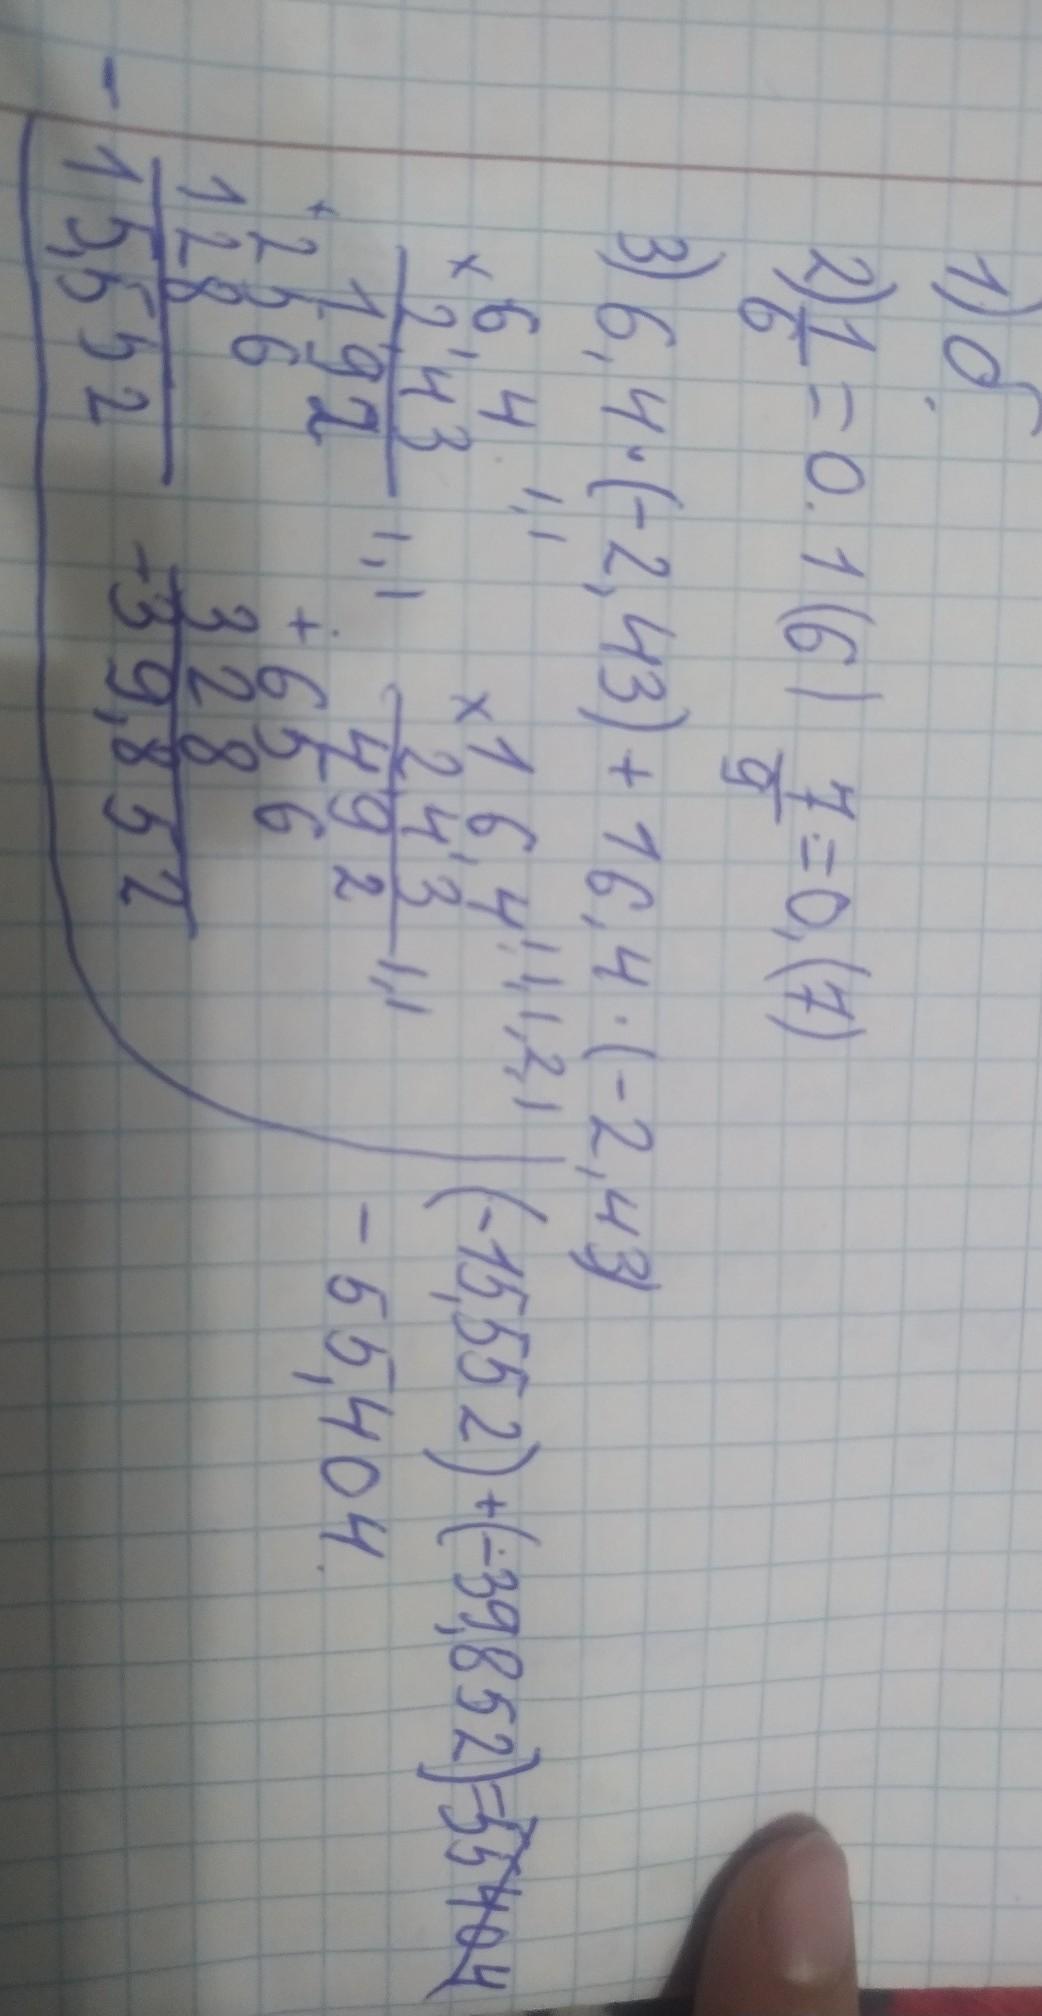 1) б.
2) 1/6 = 0.1(6) 7/9 = 0,(7)
3) 6,4 · (-2,43) + 16,4 · (-2,43)
× 6,4 1,1
2,43
192 1,1
+ 256
128
- 15,552
× 16,4 1,1,1,2,1
2,43
492 1,1
+ 656
328
-39,852
(-15,552)+(-39,852)=55404
- 55,404